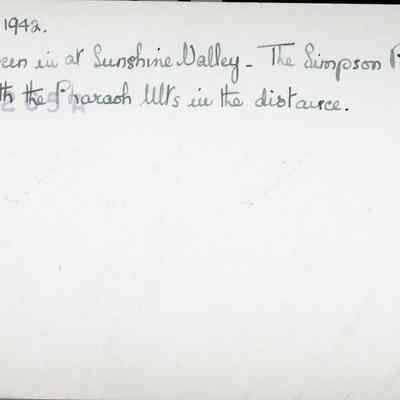 1942.
een in at Sunshine Valley - The Simpson
th the Pharaoh Mts in the distance.